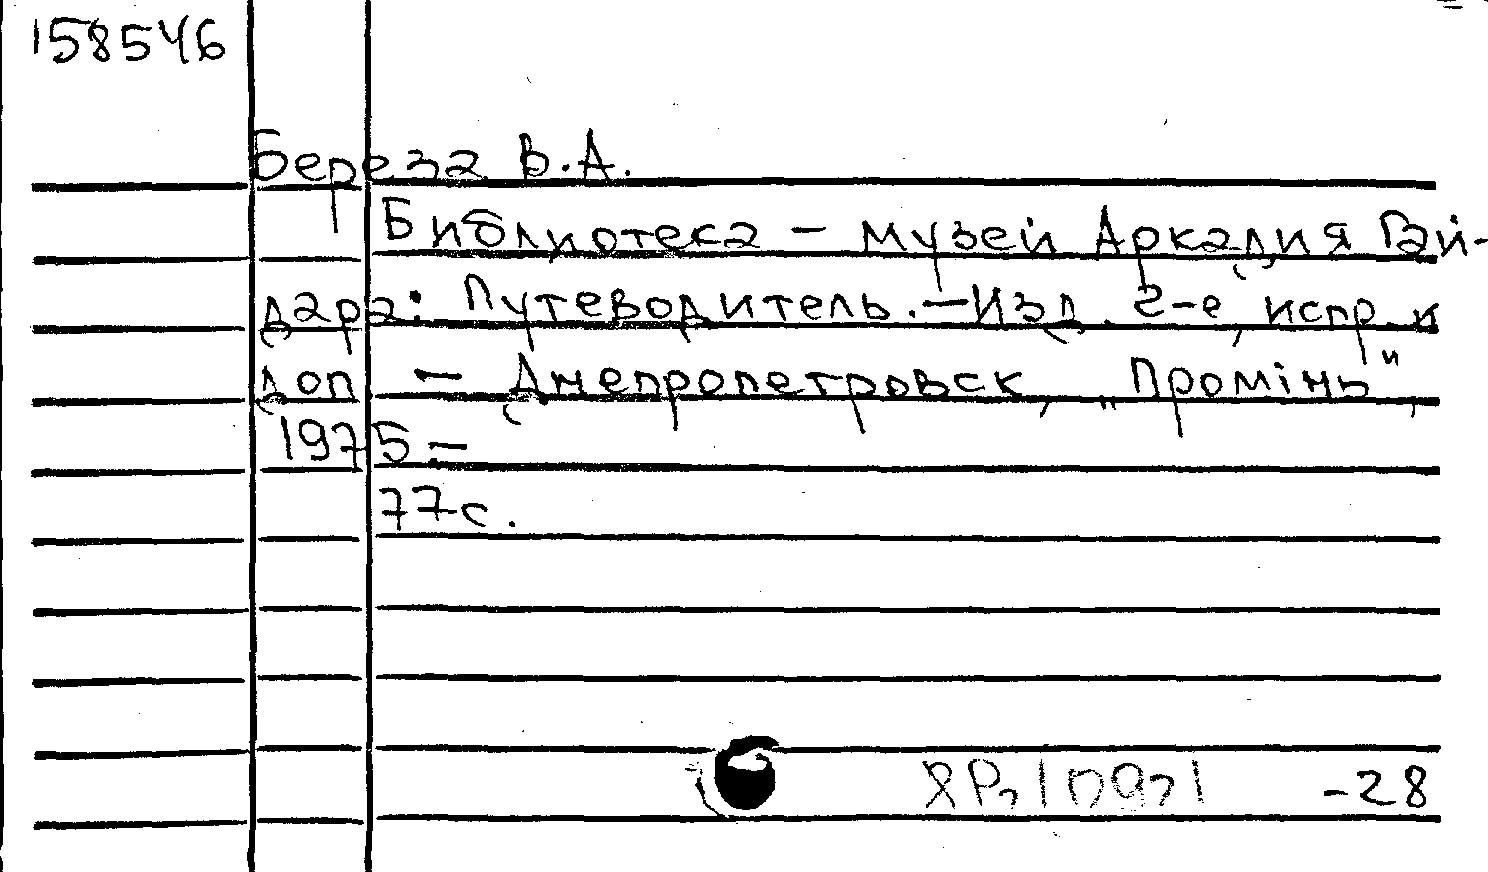 158546
Береза В.А.
Библиотека – музей Аркадия Гай-
дара: Путеводитель. – Изд. 2-е, испр. и
доп – Днепропетровск, „Промінь",
1975 –
77с.
-28